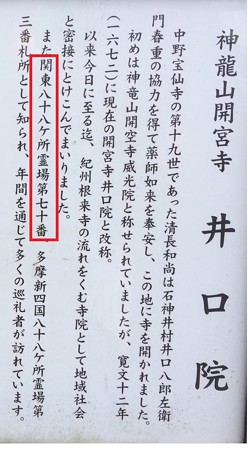 神龍山開宮寺
井口院
中野宝仙寺の第十九世であった清長和尚は石神井村井口八郎左衛
門春重の協力を得て薬師如来を奉安し、この地に寺を開かれました。
初めは神竜山開空寺威光院と称せられていましたが、寛文十二年
(一六七二)に現在の開宮寺井口院と改称。
以来今日に至る迄、紀州根来寺の流れをくむ寺院として地域社会
と密接にとけこんでまいりました。
また関東八十八ケ所霊場第七十番、多摩新四国八十八ケ所霊場第
三番札所として知られ、年間を通じて多くの巡礼者が訪れています。